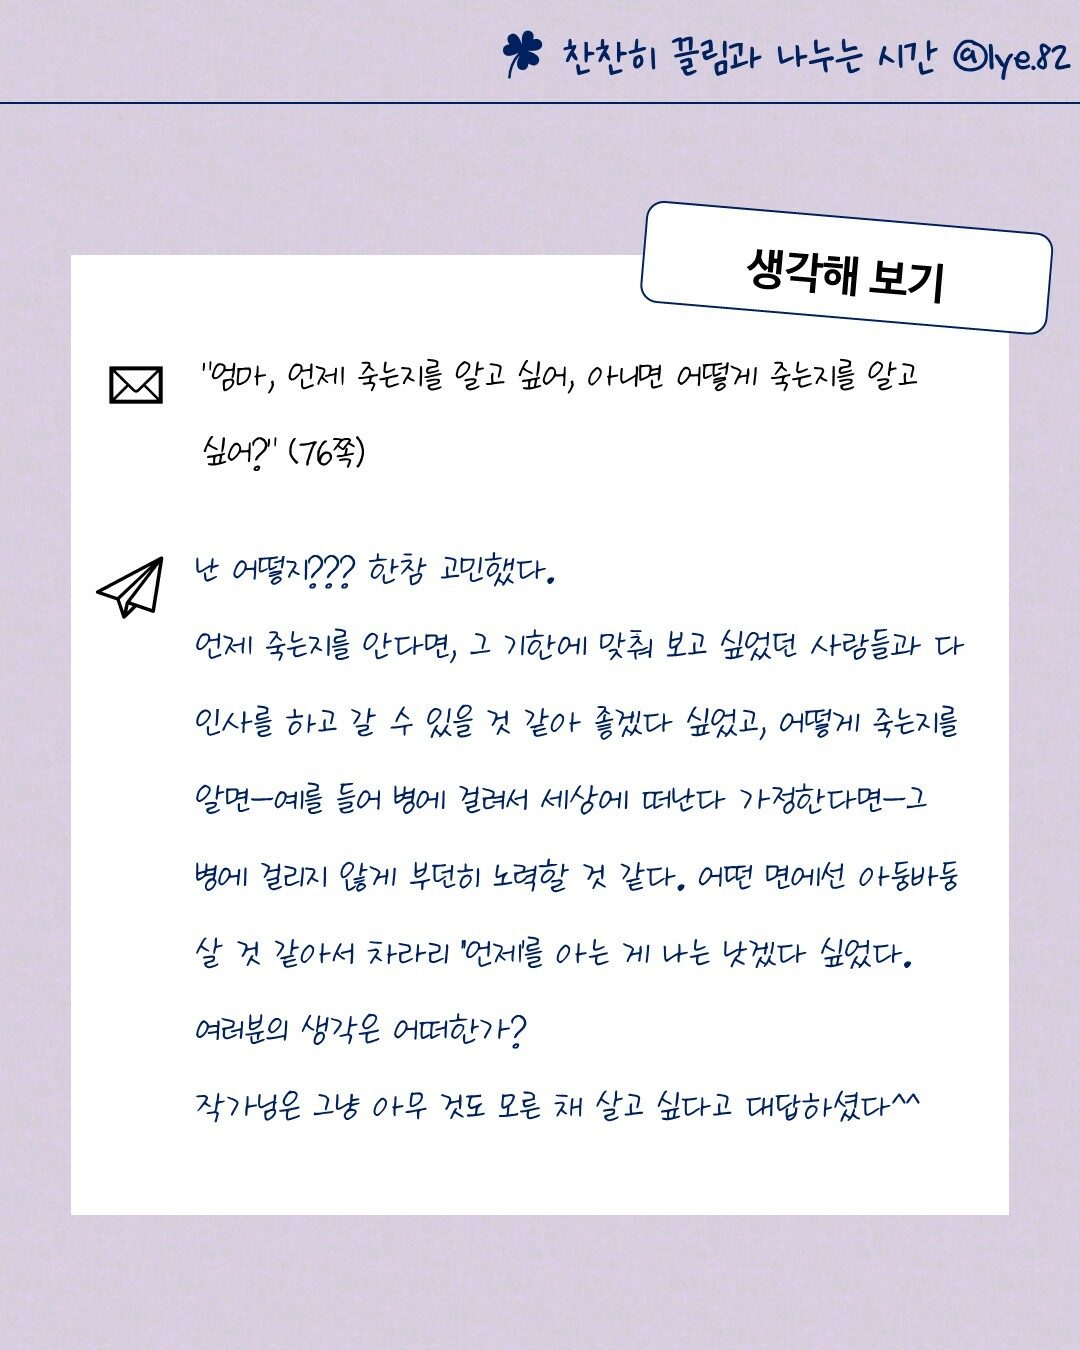 찬찬히 끌림과 나누는 시간 @lye.82
생각해 보기
"엄마, 언제 죽는지를 알고 싶어, 아니면 어떻게 죽는지를 알고
싶어?" (76쪽)
난 어떻지??? 한참 고민했다.
언제 죽는지를 안다면, 그 기한에 맞춰 보고 싶었던 사람들과 다
인사를 하고 갈 수 있을 것 같아 좋겠다 싶었고, 어떻게 죽는지를
알면-예를 들어 병에 걸려서 세상에 떠난다 가정한다면-그
병에 걸리지 않게 부던히 노력할 것 같다. 어떤 면에선 아둥바둥
살 것 같아서 차라리 '언제'를 아는 게 나는 낫겠다 싶었다.
여러분의 생각은 어떠한가?
작가님은 그냥 아무 것도 모른 채 살고 싶다고 대답하셨다^^